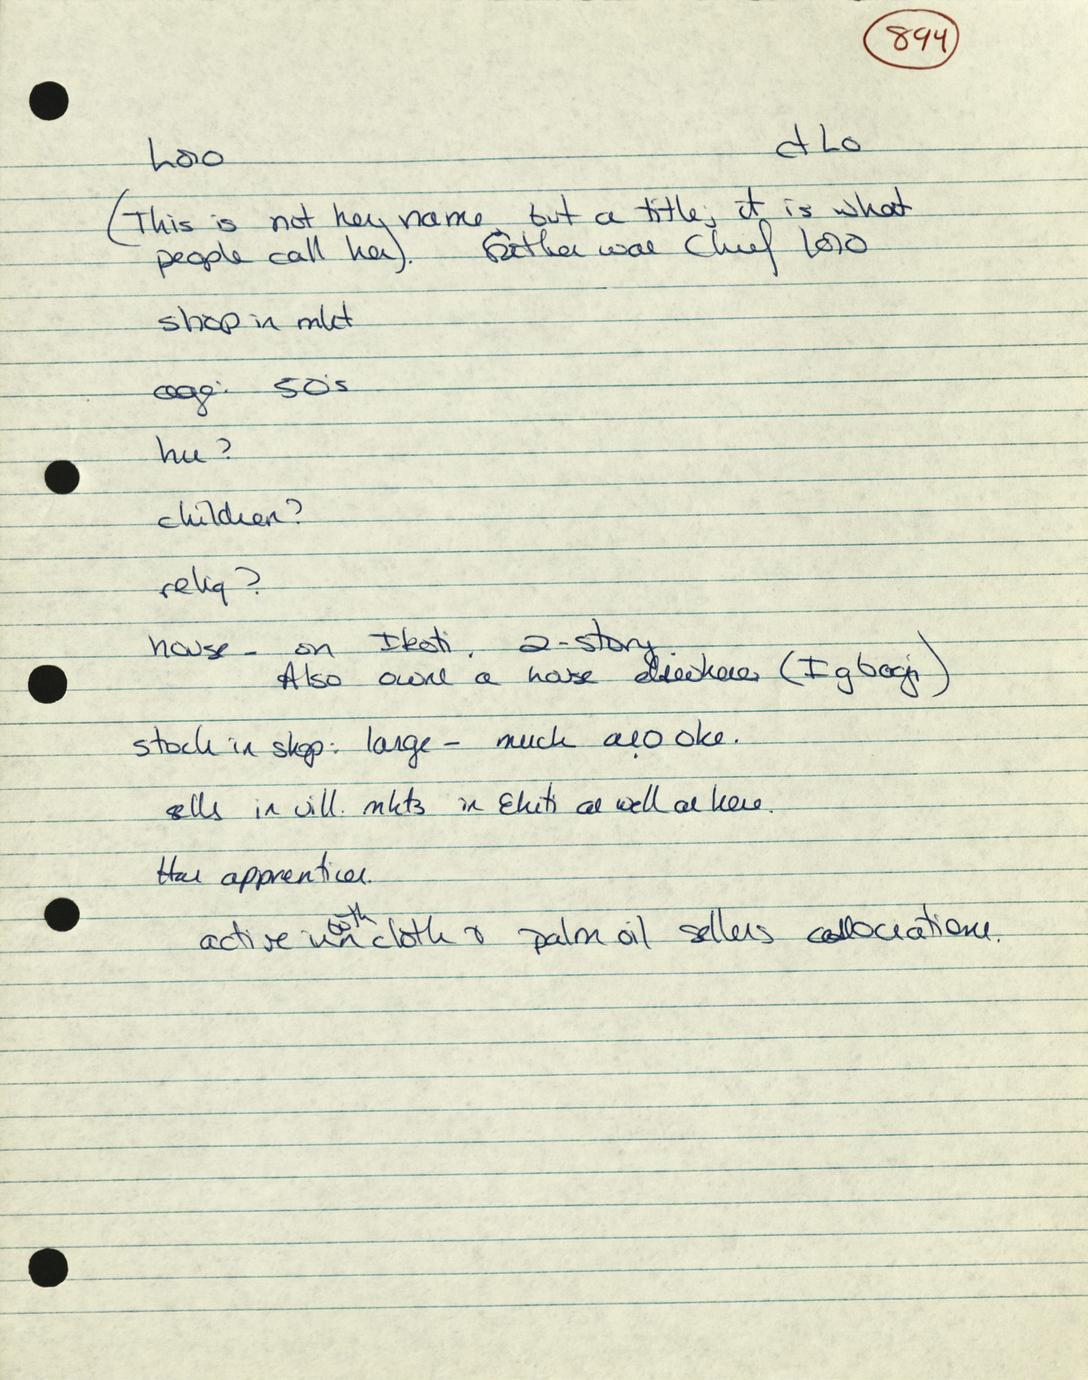 894
Loro
(This is not her name, but a title; it is what
people call her). Father was Chief Loro
shop in mkt
age: 50's
hu?
children?
relig?
house - on Ikoti, 2-story.
Also owns a house elsewhere (Igbogi)
stock in shop: large - much aṣo oke.
sells in vill. mkts in Ekiti as well as here.
Has apprentices.
active in both cloth & palm oil sellers associations.